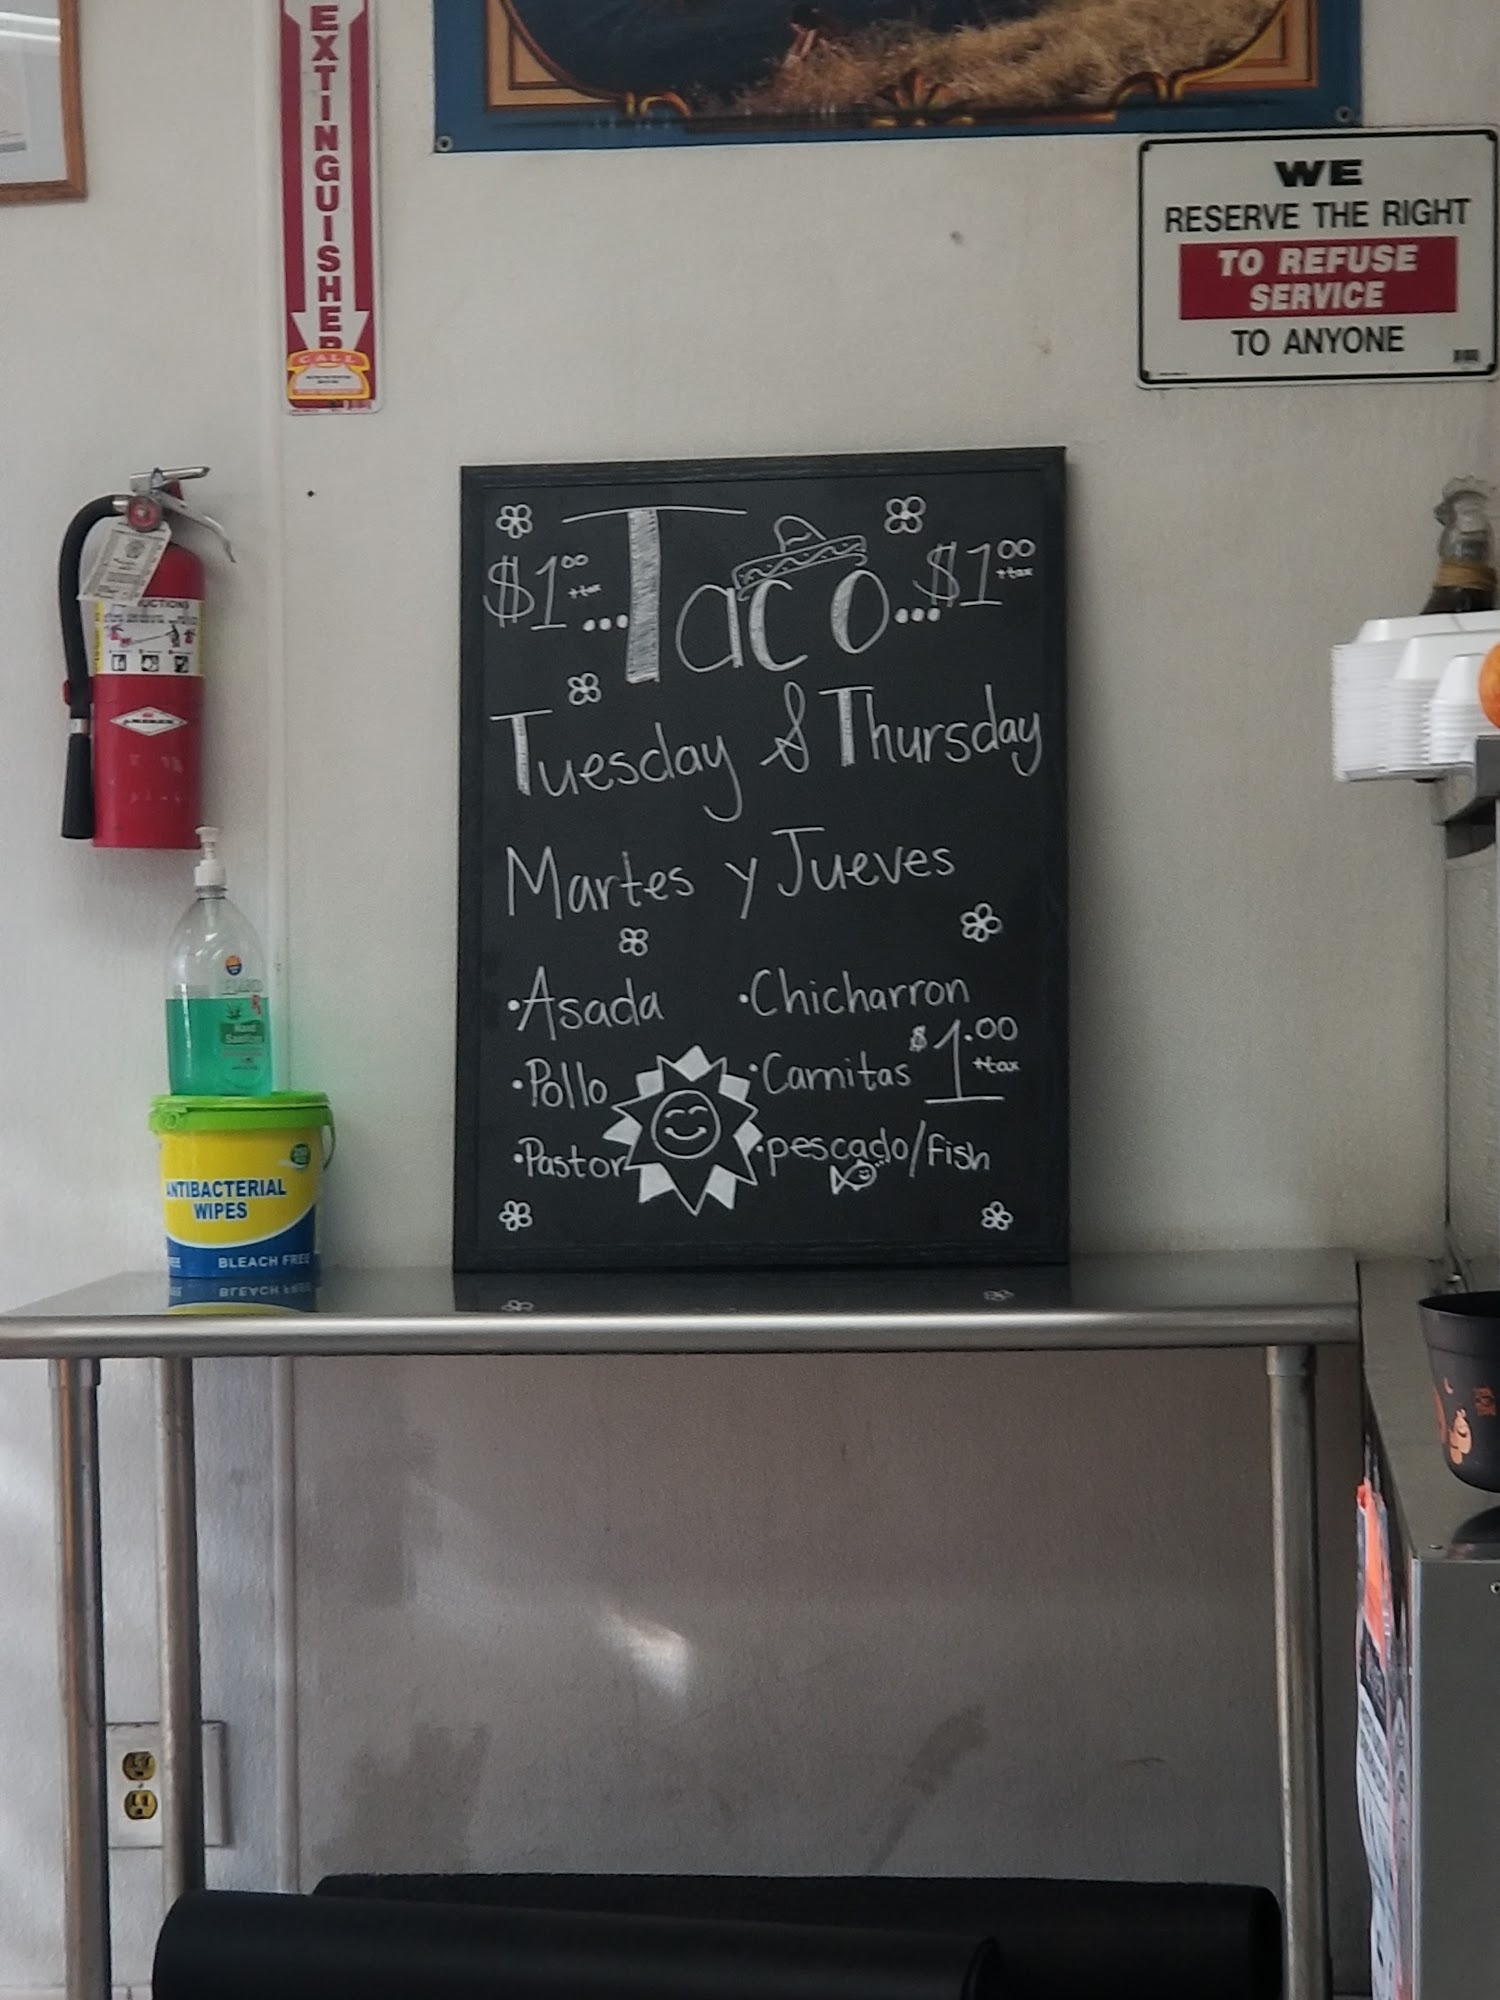 EXTINGUISHER
CALL
WE
RESERVE THE RIGHT
TO REFUSE
SERVICE
TO ANYONE
$1.00 +tax ... Taco ... $1.00 +tax
Tuesday & Thursday
Martes y Jueves
•Asada
•Pollo
•Pastor
•Chicharron
•Carnitas $1.00 +tax
•pescado/fish
INSTRUCTIONS
ANSUL
Hand
Sanitizer
ANTIBACTERIAL
WIPES
BLEACH FREE